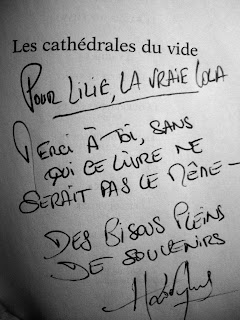 Les cathédrales du vide
POUR LILIE, LA VRAIE LOLA
MERCI À TOI, SANS
QUI CE LIVRE NE
SERAIT PAS LE MÊME -
DES BISOUS PLEINS
DE SOUVENIRS